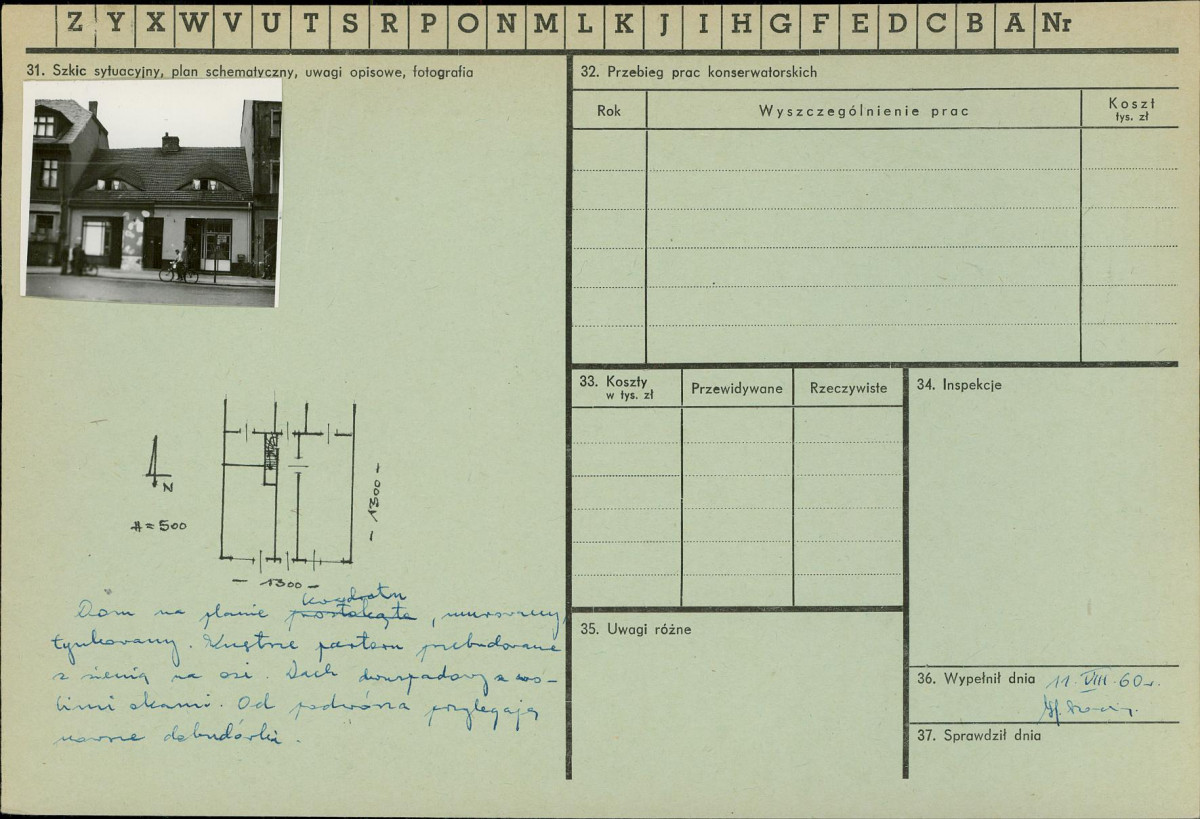 Z Y X W V U T S R P O N M L K J I H G F E D C B A Nr
31. Szkic sytuacyjny, plan schematyczny, uwagi opisowe, fotografia
N
# = 500
1300
– 1300 –
kwadratu
Dom na planie prostokąta, murowany,
tynkowany. Wnętrze parteru przebudowane
z sienią na osi. Dach dwuspadowy z wo-
limi okami. Od podwórza przylegają
nowsze dobudówki.
32. Przebieg prac konserwatorskich
Rok
Wyszczególnienie prac
Koszt
tys. zł
33. Koszty
w tys. zł
Przewidywane
Rzeczywiste
34. Inspekcje
35. Uwagi różne
36. Wypełnił dnia 11. VIII. 60 r.
37. Sprawdził dnia